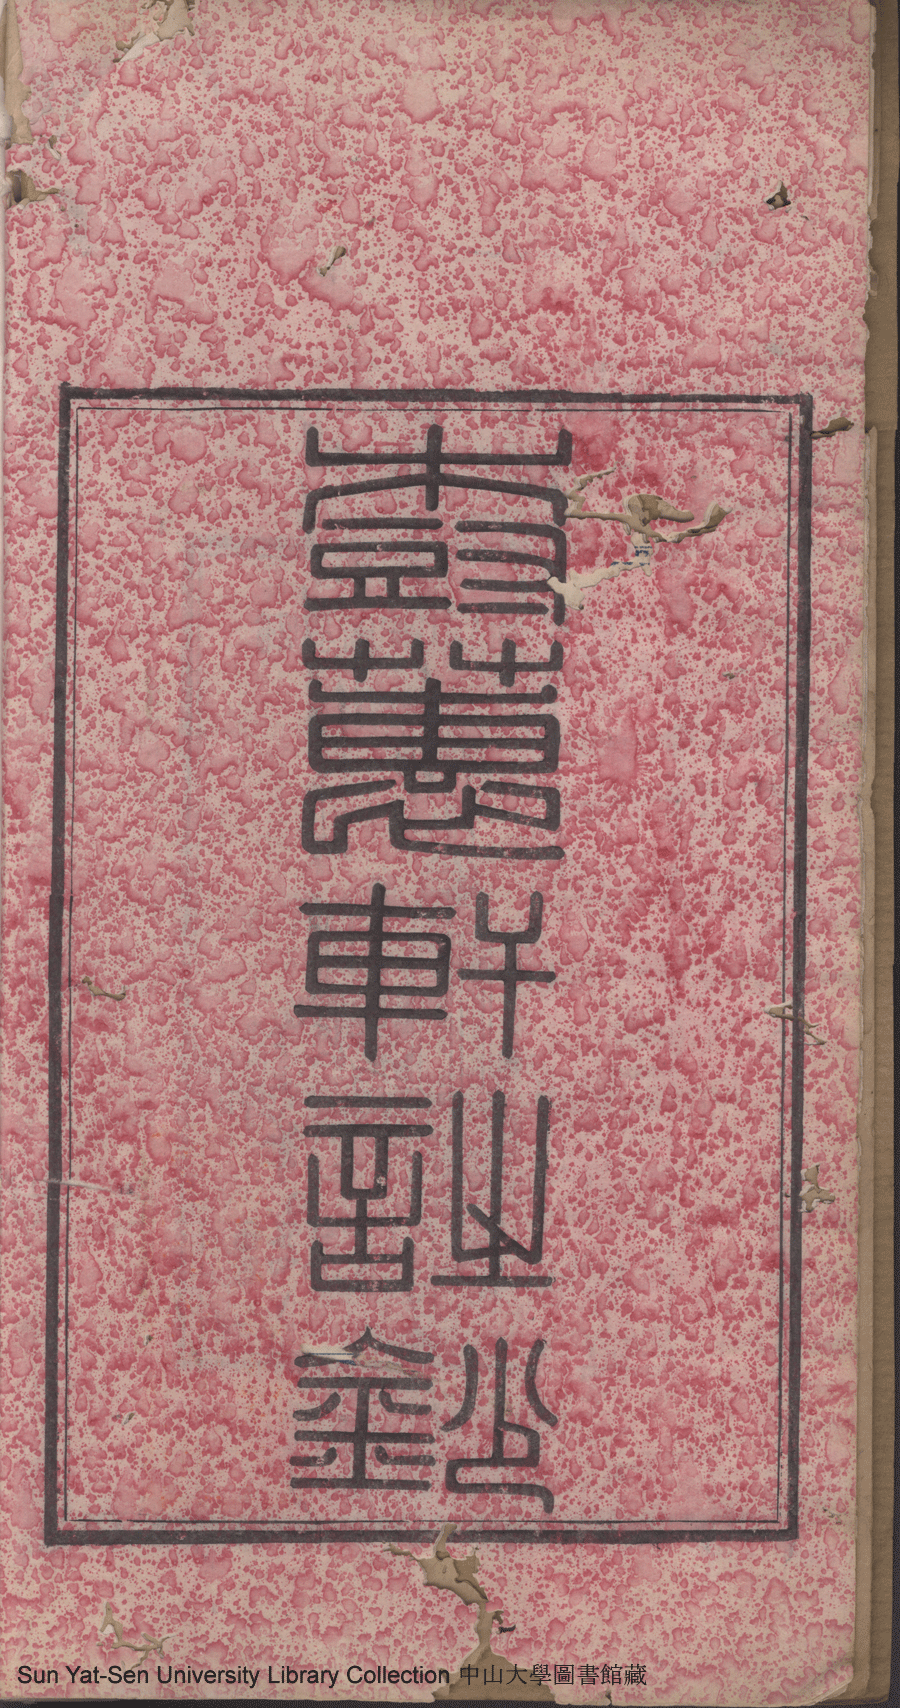 樹蕙軒詩鈔
Sun Yat-Sen University Library Collection 中山大學圖書館藏